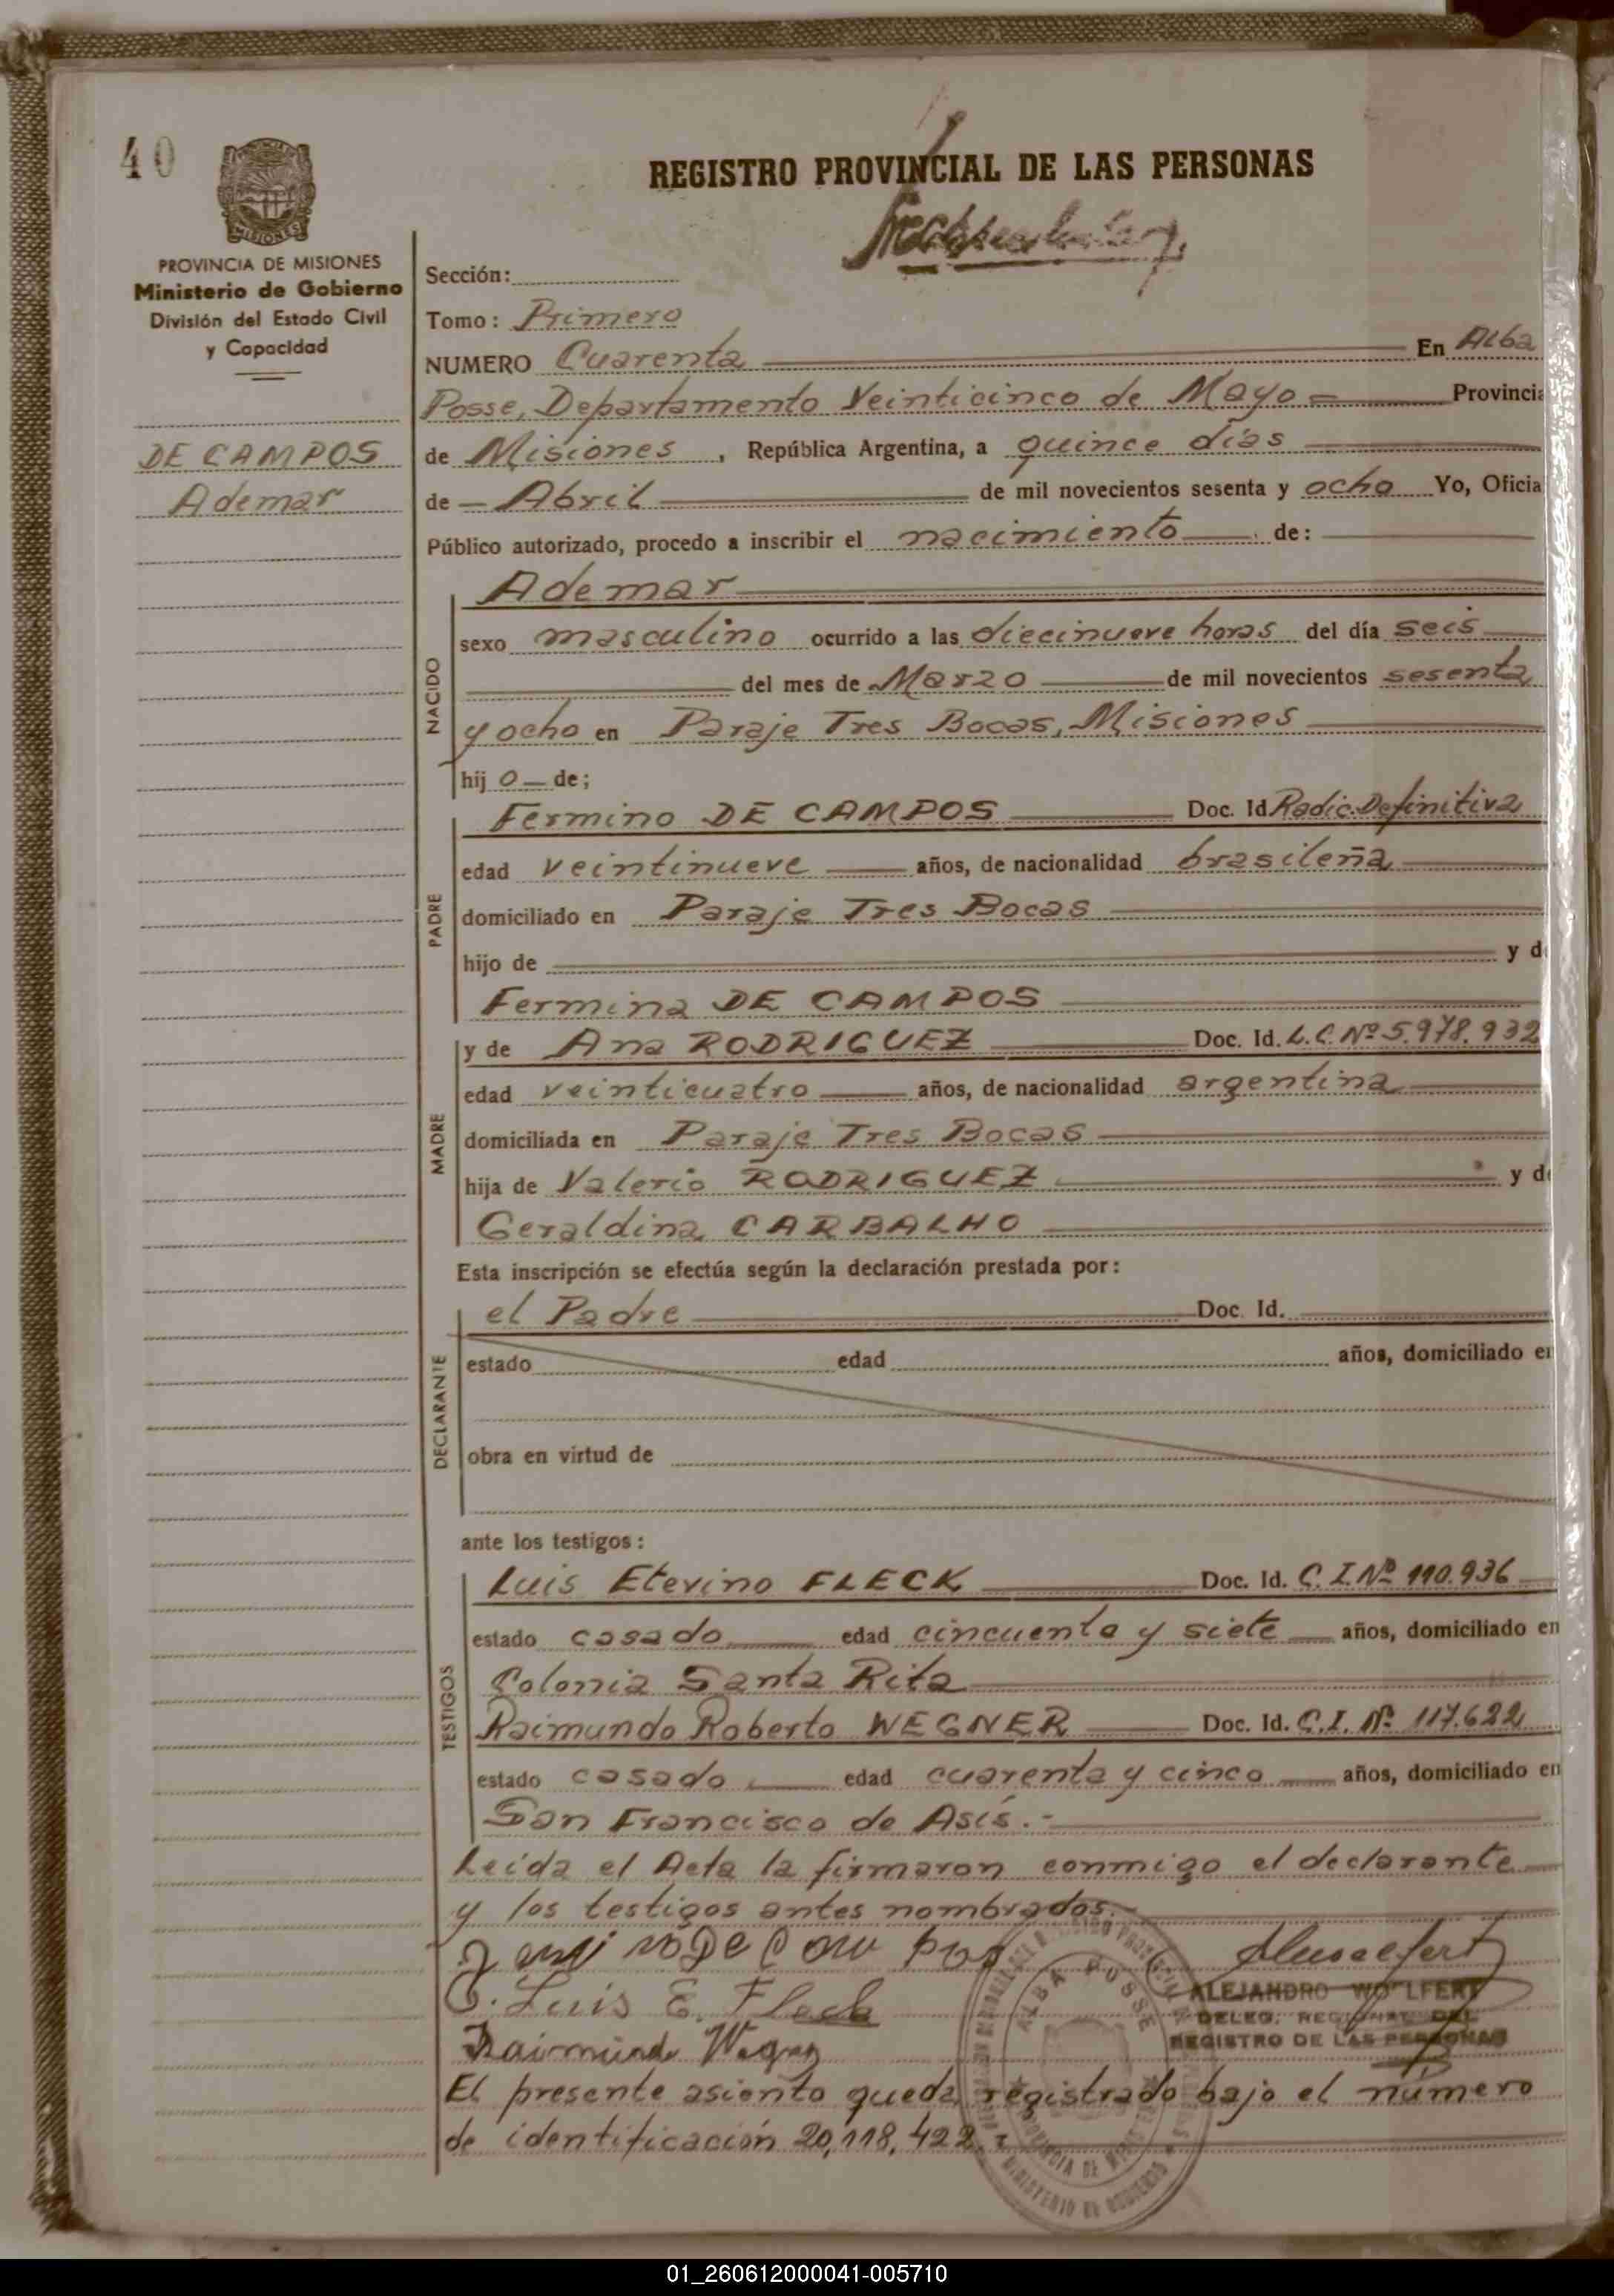 40
REGISTRO PROVINCIAL DE LAS PERSONAS
PROVINCIA DE MISIONES
Ministerio de Gobierno
División del Estado Civil
y Capacidad
DE CAMPOS
Ademar
Sección:
Tomo: Primero
NUMERO Cuarenta En Alba
Posse, Departamento Veinticinco de Mayo = Provincia
de Misiones, República Argentina, a quince días
de - Abril de mil novecientos sesenta y ocho Yo, Oficia
Público autorizado, procedo a inscribir el nacimiento de:
NACIDO
Ademar
sexo masculino ocurrido a las diecinueve horas del día seis
del mes de Marzo de mil novecientos sesenta
y ocho en Paraje Tres Bocas, Misiones
hij o de;
PADRE
Fermino DE CAMPOS Doc. Id Radic. Definitiva
edad veintinueve años, de nacionalidad brasileña
domiciliado en Paraje Tres Bocas
hijo de y d
Fermina DE CAMPOS
MADRE
y de Ana RODRIGUEZ Doc. Id. L.C. Nº 5.978.932
edad veinticuatro años, de nacionalidad argentina
domiciliada en Paraje Tres Bocas
hija de Valerio RODRIGUEZ y d
Geraldina CARBALHO
Esta inscripción se efectúa según la declaración prestada por:
DECLARANTE
el Padre Doc. Id.
estado edad años, domiciliado en
obra en virtud de
ante los testigos:
TESTIGOS
Luis Etevino FLECK Doc. Id. C. I. Nº 110.936
estado casado edad cincuenta y siete años, domiciliado en
Colonia Santa Rita
Raimundo Roberto WEGNER Doc. Id. C.I. Nº 117.622
estado casado edad cuarenta y cinco años, domiciliado en
San Francisco de Asís.-
Leída el Acta la firmaron conmigo el declarante
y los testigos antes nombrados.-
Luis E. Fleck
Raimundo
ALBA POSSE
PROVINCIA DE MISIONES
MINISTERIO DE GOBIERNO
ALEJANDRO WOLFERT
DELEG. REGIONAL DEL
REGISTRO DE LAS PERSONAS
El presente asiento queda registrado bajo el número
de identificación 20,118,422.-
01_260612000041-005710